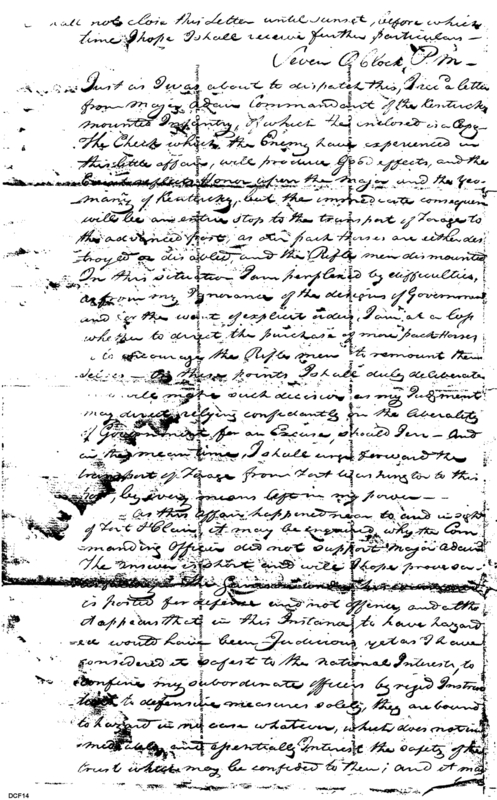 shall not close this Letter until sunset, before which
time I hope I shall receive further particulars —
Seven O Clock, P m —
Just as I was about to dispatch this, I rec'd a letter
from Major Adair Commandant of the Kentucky
mounted Infantry, of which the inclosed is a Copy
The Check which the Enemy have experienced in
this little affair, will produce good effects, and the
Event reflects Honor upon the Major and the yeo-
manry of Kentucky, but the immediate consequen
will be an entire stop to the transport of Forage to
the advanced post, as our pack Horses are either des
troyed or disabled, and the Rifle men dismounted
In this situation I am perplexed by difficulties,
as from my Ignorance of the designs of Government
and for the want of explicit orders, I am at a loss
whether to direct the purchase of more pack Horses
to encourage the Rifle men to remount them
selves — On these points I shall duly deliberate
will make such decision as my Judgment
may direct, relying confidently on the liberality
of Government for an Excuse, should I err — And
in the mean time, I shall urge forward the
transport of Forage from Fort Washington to this
by every means left in my power —
As this affair happened near to and in sight
of Fort St Clair, it may be enquired why the Com
manding Officer did not support Major Adair
The answer is short and will I hope prove sa-
the Garrison
is posted for defence and not offence, and altho
it appears that in this Instance to have hazard
ed would have been Judicious, yet as I have
considered it safest to the national Interests, to
confine my subordinate officers by rigid Instruc
to defensive measures solely, they are bound
to hazard in no case whatever, which does not im
mediately and essentially Interest the safety of the
trust which may be confided to them; and it may
DCF14